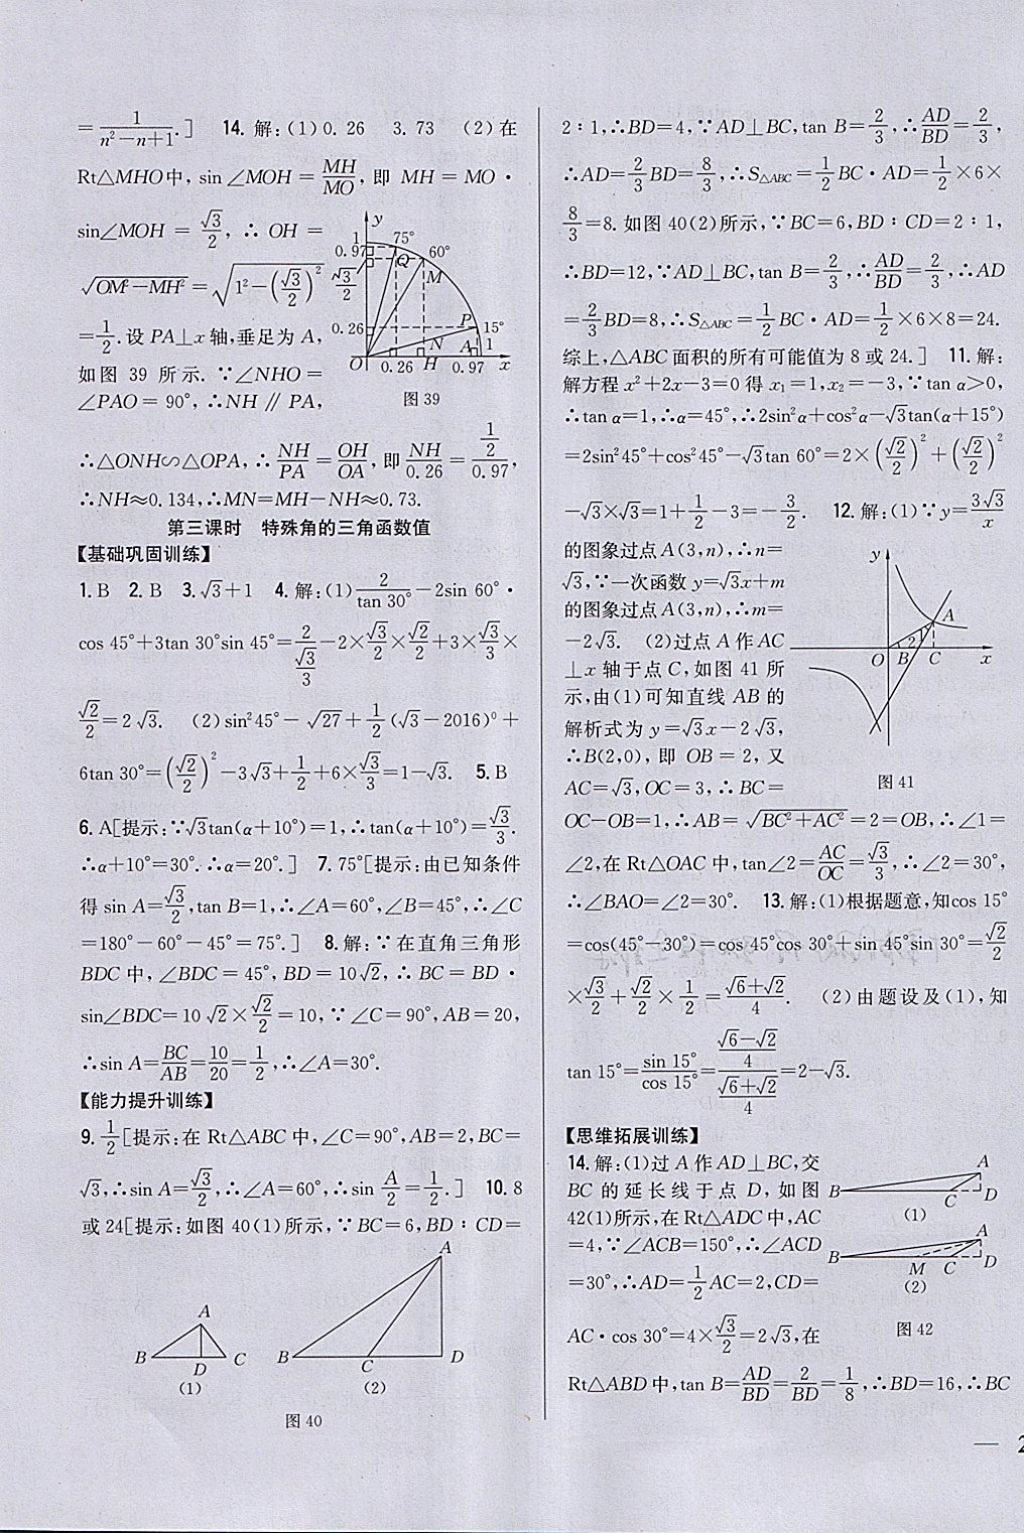 =1/(n²−n+1).] 14. 解:(1)0.26 3.73 (2)在
Rt△MHO中, sin∠MOH=MH/MO, 即 MH=MO·
sin∠MOH=√3/2, ∴OH=
√(OM²−MH²)=√(1²−(√3/2)²)
=1/2. 设 PA⊥x 轴,垂足为 A,
如图 39 所示. ∵∠NHO=
∠PAO=90°, ∴NH∥PA,
y
1
0.97
√3/2
0.26
75°
60°
Q
M
P
15°
N
A
1
O
0.26
H
0.97
x
图 39
∴△ONH∽△OPA, ∴NH/PA=OH/OA, 即NH/0.26=(1/2)/0.97,
∴NH≈0.134,∴MN=MH−NH≈0.73.
第三课时 特殊角的三角函数值
【基础巩固训练】
1. B 2. B 3. √3+1 4. 解:(1)2/tan 30°−2sin 60°·
cos 45°+3tan 30°sin 45°=2/(√3/3)−2×√3/2×√2/2+3×√3/3×
√2/2=2√3. (2)sin²45°−√27+1/2(√3−2016)⁰+
6tan 30°=(√2/2)²−3√3+1/2+6×√3/3=1−√3. 5. B
6. A[提示:∵√3tan(α+10°)=1,∴tan(α+10°)=√3/3.
∴α+10°=30°. ∴α=20°.] 7. 75°[提示:由已知条件
得 sin A=√3/2,tan B=1,∴∠A=60°,∠B=45°,∴∠C
=180°−60°−45°=75°.] 8. 解:∵在直角三角形
BDC 中,∠BDC=45°,BD=10√2,∴BC=BD·
sin∠BDC=10√2×√2/2=10,∵∠C=90°,AB=20,
∴sin A=BC/AB=10/20=1/2,∴∠A=30°.
【能力提升训练】
9. 1/2[提示:在 Rt△ABC 中,∠C=90°,AB=2,BC=
√3,∴sin A=√3/2,∴∠A=60°,∴sin A/2=1/2.] 10. 8
或 24[提示:如图 40(1)所示,∵BC=6,BD∶CD=
A
B
D
C
(1)
A
B
C
D
(2)
图 40
2∶1,∴BD=4,∵AD⊥BC,tan B=2/3,∴AD/BD=2/3,
∴AD=2/3BD=8/3,∴S△ABC=1/2BC·AD=1/2×6×
8/3=8. 如图 40(2)所示,∵BC=6,BD∶CD=2∶1,
∴BD=12,∵AD⊥BC,tan B=2/3,∴AD/BD=2/3,∴AD
=2/3BD=8,∴S△ABC=1/2BC·AD=1/2×6×8=24.
综上,△ABC 面积的所有可能值为 8 或 24.] 11. 解:
解方程 x²+2x−3=0 得 x₁=1,x₂=−3,∵tan α>0,
∴tan α=1,∴α=45°,∴2sin²α+cos²α−√3tan(α+15°)
=2sin²45°+cos²45°−√3tan 60°=2×(√2/2)²+(√2/2)²
−√3×√3=1+1/2−3=−3/2. 12. 解:(1)∵y=3√3/x
的图象过点 A(3,n),∴n=
√3,∵一次函数 y=√3x+m
的图象过点 A(3,n),∴m=
−2√3. (2)过点 A 作 AC
⊥x 轴于点 C,如图 41 所
示,由(1)可知直线 AB 的
解析式为 y=√3x−2√3,
∴B(2,0),即 OB=2,又
AC=√3,OC=3,∴BC=
y
A
1
2
O
B
C
x
图 41
OC−OB=1,∴AB=√(BC²+AC²)=2=OB,∴∠1=
∠2,在 Rt△OAC 中,tan∠2=AC/OC=√3/3,∴∠2=30°,
∴∠BAO=∠2=30°. 13. 解:(1)根据题意,知cos 15°
=cos(45°−30°)=cos 45°cos 30°+sin 45°sin 30°=√2/2
×√3/2+√2/2×1/2=(√6+√2)/4. (2)由题设及(1),知
tan 15°=sin 15°/cos 15°=((√6−√2)/4)/((√6+√2)/4)=2−√3.
【思维拓展训练】
14. 解:(1)过 A 作 AD⊥BC,交
BC 的延长线于点 D,如图
42(1)所示,在 Rt△ADC 中,AC
=4,∵∠ACB=150°,∴∠ACD
=30°,∴AD=1/2AC=2,CD=
AC·cos 30°=4×√3/2=2√3,在
A
B
C
D
(1)
A
B
M
C
D
(2)
图 42
Rt△ABD 中,tan B=AD/BD=2/BD=1/8,∴BD=16,∴BC
— 2